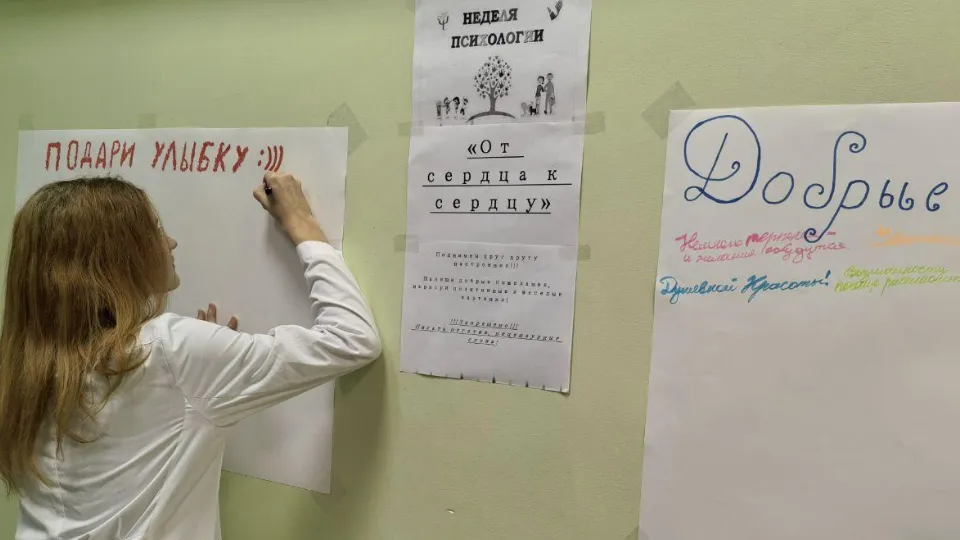 ПОДАРИ УЛЫБКУ :)))
НЕДЕЛЯ
ПСИХОЛОГИИ
«От
сердца к
сердцу»
Поднимем друг другу
настроение!!!
Напиши добрые пожелания,
нарисуй позитивные и веселые
картинки!
!!!Запрещено!!!
Писать ругательные, нецензурные
слова!
Добрые
Немного терпения
и желания сбудутся
Душевной Красоты!
Возможности